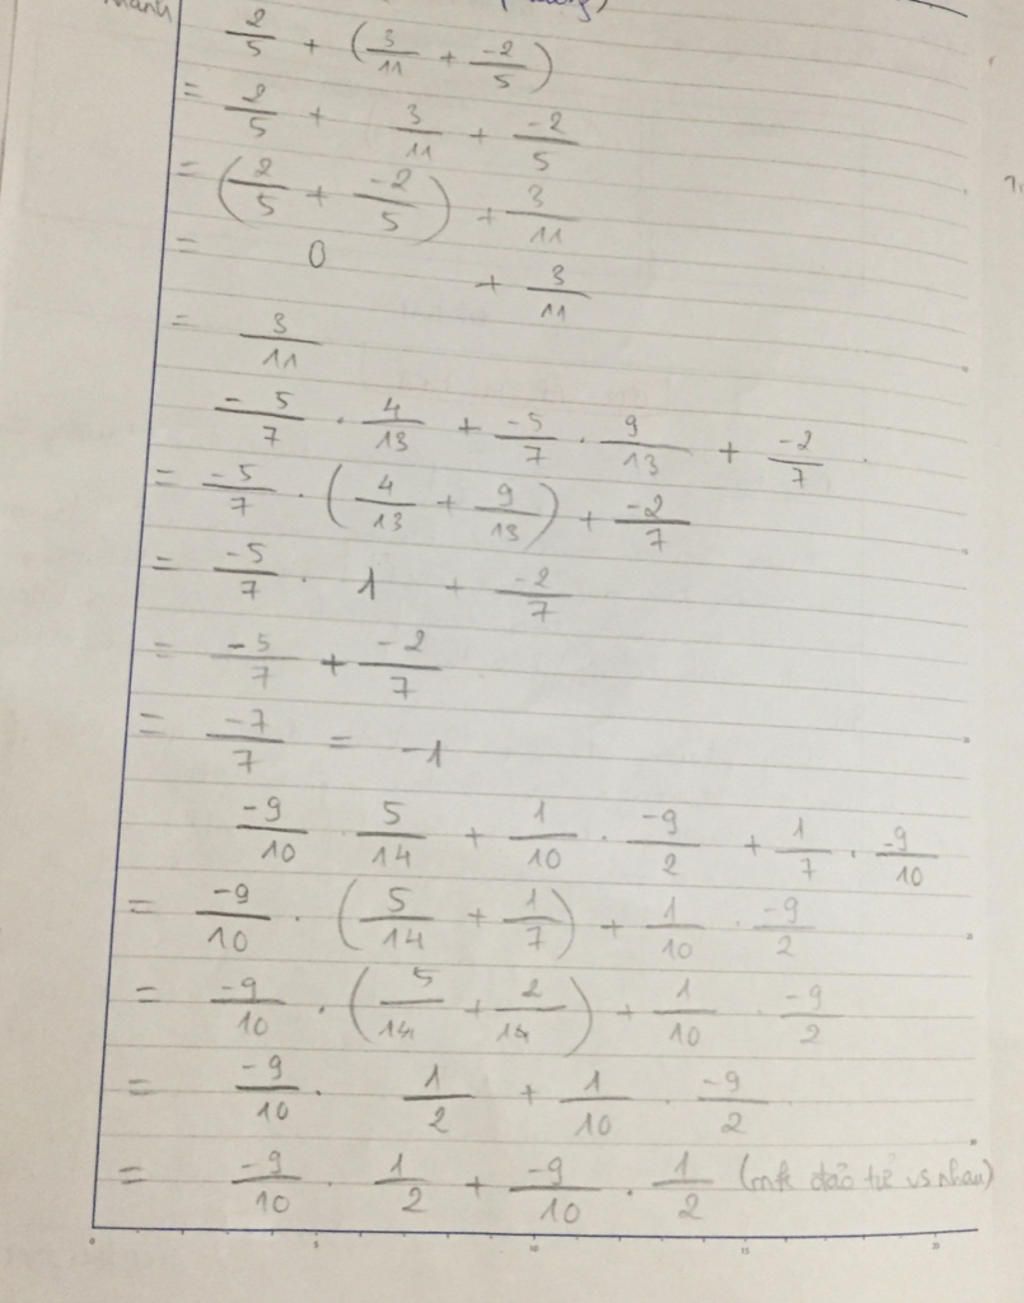 2/5 + (3/11 + -2/5)
= 2/5 + 3/11 + -2/5
= (2/5 + -2/5) + 3/11
= 0 + 3/11
= 3/11
-5/7 . 4/13 + -5/7 . 9/13 + -2/7
= -5/7 . (4/13 + 9/13) + -2/7
= -5/7 . 1 + -2/7
= -5/7 + -2/7
= -7/7 = -1
-9/10 . 5/14 + 1/10 . -9/2 + 1/7 . -9/10
= -9/10 . (5/14 + 1/7) + 1/10 . -9/2
= -9/10 . (5/14 + 2/14) + 1/10 . -9/2
= -9/10 . 1/2 + 1/10 . -9/2
= -9/10 . 1/2 + -9/10 . 1/2 (mk đảo tử vs nhau)
0 5 10 15 20